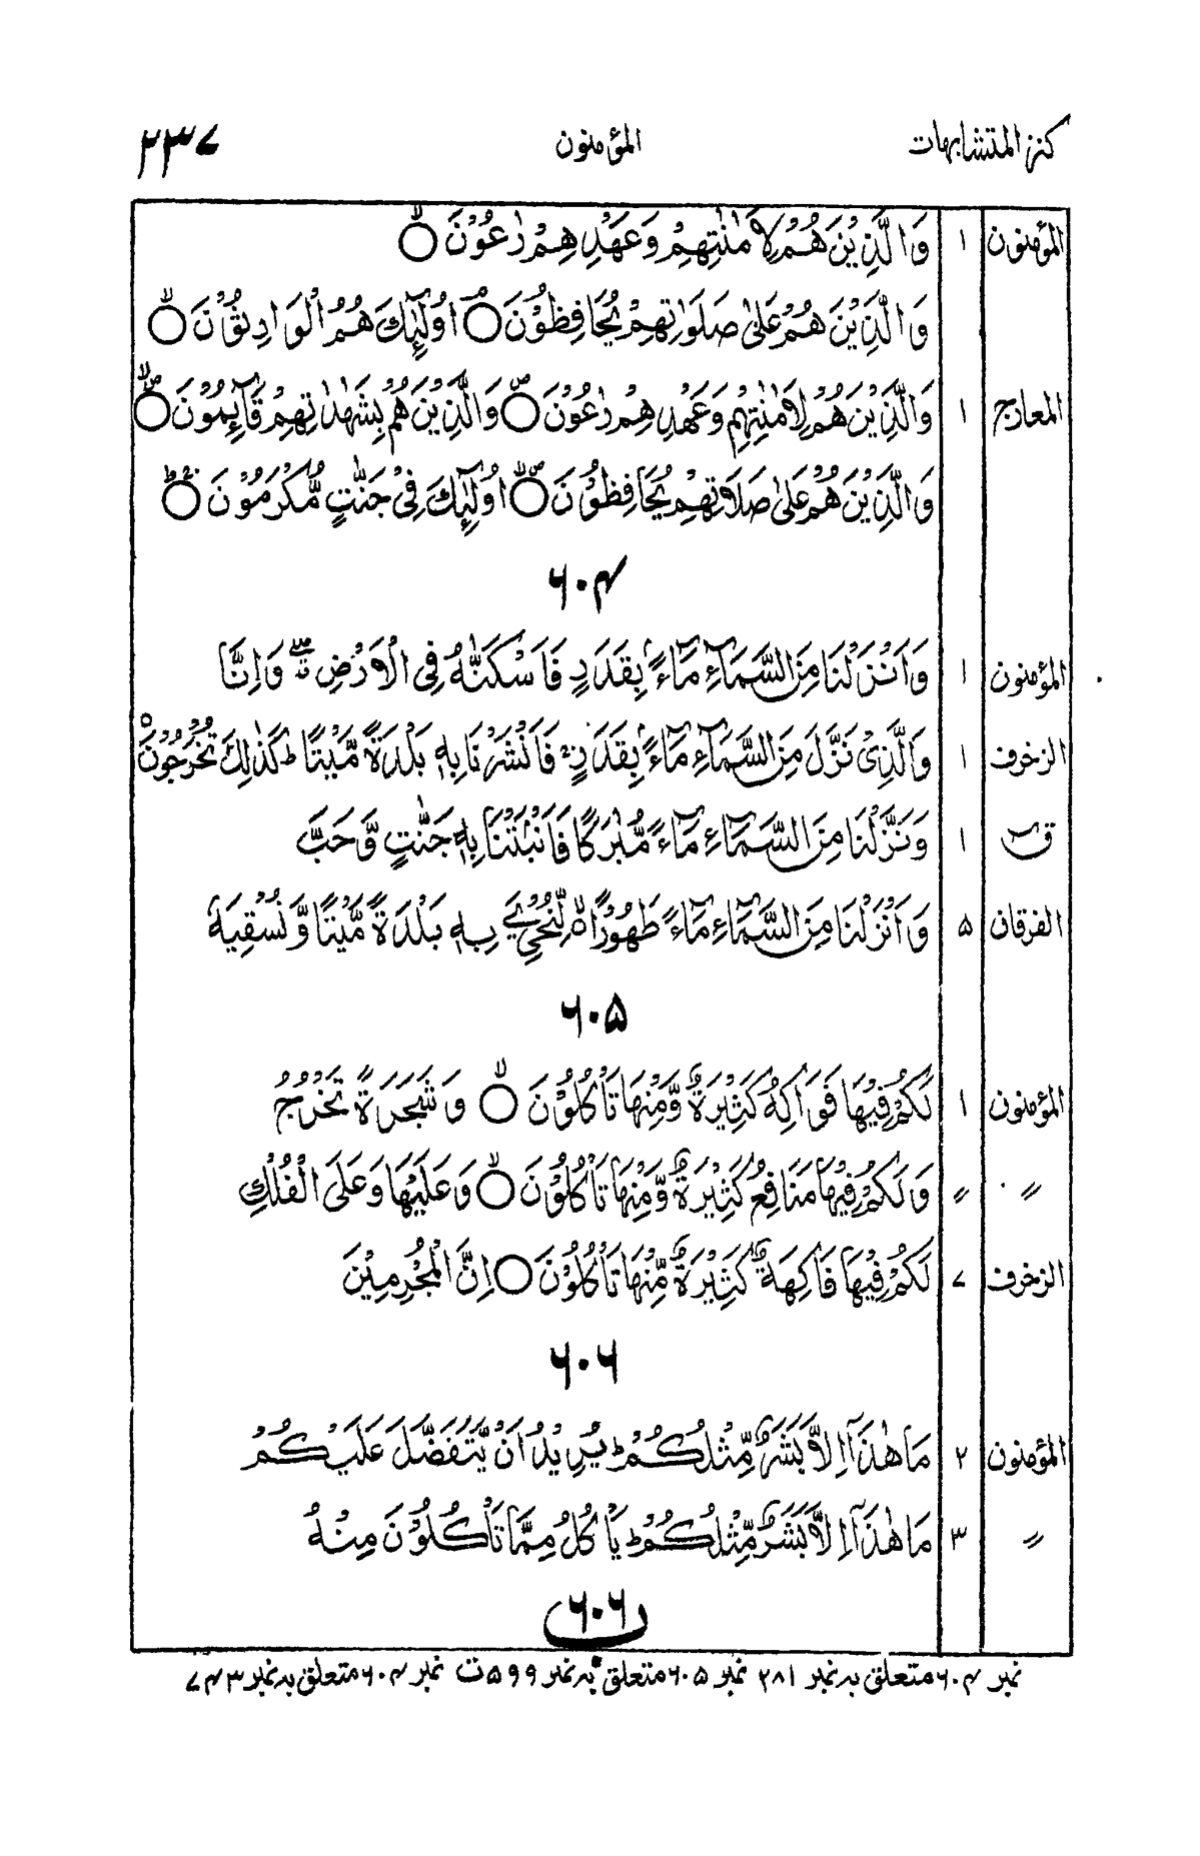 كنز المتشابهات المؤمنون ٢٣٧
المؤمنون ١ وَالَّذِيْنَ هُمْ لِاَمٰنٰتِهِمْ وَعَهْدِهِمْ رٰعُوْنَ ○ۙ
وَالَّذِيْنَ هُمْ عَلٰى صَلَوٰتِهِمْ يُحَافِظُوْنَ ○ۘ اُولٰٓئِكَ هُمُ الْوَارِثُوْنَ ○ۙ
المعارج ١ وَالَّذِيْنَ هُمْ لِاَمٰنٰتِهِمْ وَعَهْدِهِمْ رٰعُوْنَ ○ۙ وَالَّذِيْنَ هُمْ بِشَهٰدٰتِهِمْ قَآئِمُوْنَ ○ۙ
وَالَّذِيْنَ هُمْ عَلٰى صَلَاتِهِمْ يُحَافِظُوْنَ ○ۙ اُولٰٓئِكَ فِىْ جَنّٰتٍ مُّكْرَمُوْنَ ○ؕ
۶۰۴
المؤمنون ١ وَاَنْزَلْنَا مِنَ السَّمَآءِ مَآءًۢ بِقَدَرٍ فَاَسْكَنّٰهُ فِى الْاَرْضِ ۖ وَاِنَّا
الزخرف ١ وَالَّذِىْ نَزَّلَ مِنَ السَّمَآءِ مَآءًۢ بِقَدَرٍ ۚ فَاَنْشَرْنَا بِهٖ بَلْدَةً مَّيْتًا ۚ كَذٰلِكَ تُخْرَجُوْنَ ○
قٓ ١ وَنَزَّلْنَا مِنَ السَّمَآءِ مَآءً مُّبٰرَكًا فَاَنْبَتْنَا بِهٖ جَنّٰتٍ وَّحَبَّ
الفرقان ۵ وَاَنْزَلْنَا مِنَ السَّمَآءِ مَآءً طَهُوْرًا ۙ لِّنُحْيِۦَ بِهٖ بَلْدَةً مَّيْتًا وَّنُسْقِيَهٗ
۶۰۵
المؤمنون ١ لَكُمْ فِيْهَا فَوَاكِهُ كَثِيْرَةٌ وَّمِنْهَا تَاْكُلُوْنَ ○ۙ وَشَجَرَةً تَخْرُجُ
〃 〃 وَلَكُمْ فِيْهَا مَنَافِعُ كَثِيْرَةٌ وَّمِنْهَا تَاْكُلُوْنَ ○ۙ وَعَلَيْهَا وَعَلَى الْفُلْكِ
الزخرف ٧ لَكُمْ فِيْهَا فَاكِهَةٌ كَثِيْرَةٌ مِّنْهَا تَاْكُلُوْنَ ○ اِنَّ الْمُجْرِمِيْنَ
۶۰۶
المؤمنون ٢ مَا هٰذَآ اِلَّا بَشَرٌ مِّثْلُكُمْ ۙ يُرِيْدُ اَنْ يَّتَفَضَّلَ عَلَيْكُمْ
〃 ٣ مَا هٰذَآ اِلَّا بَشَرٌ مِّثْلُكُمْ ۙ يَاْكُلُ مِمَّا تَاْكُلُوْنَ مِنْهُ
۶۰۶ ت
نمبر ۶۰۴ متعلق بہ نمبر ۲۸۱ نمبر ۶۰۵ متعلق بہ نمبر ۵۹۹ ت نمبر ۶۰۴ متعلق بہ نمبر ۷۴۳